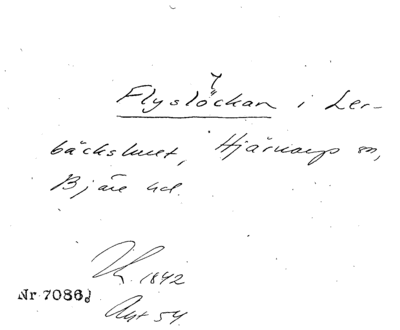 Flyslöckan i Ler-
bäckshult, Hjärnarp sn,
Bjäre hd.
1842
Nr 7086d
Akt 54